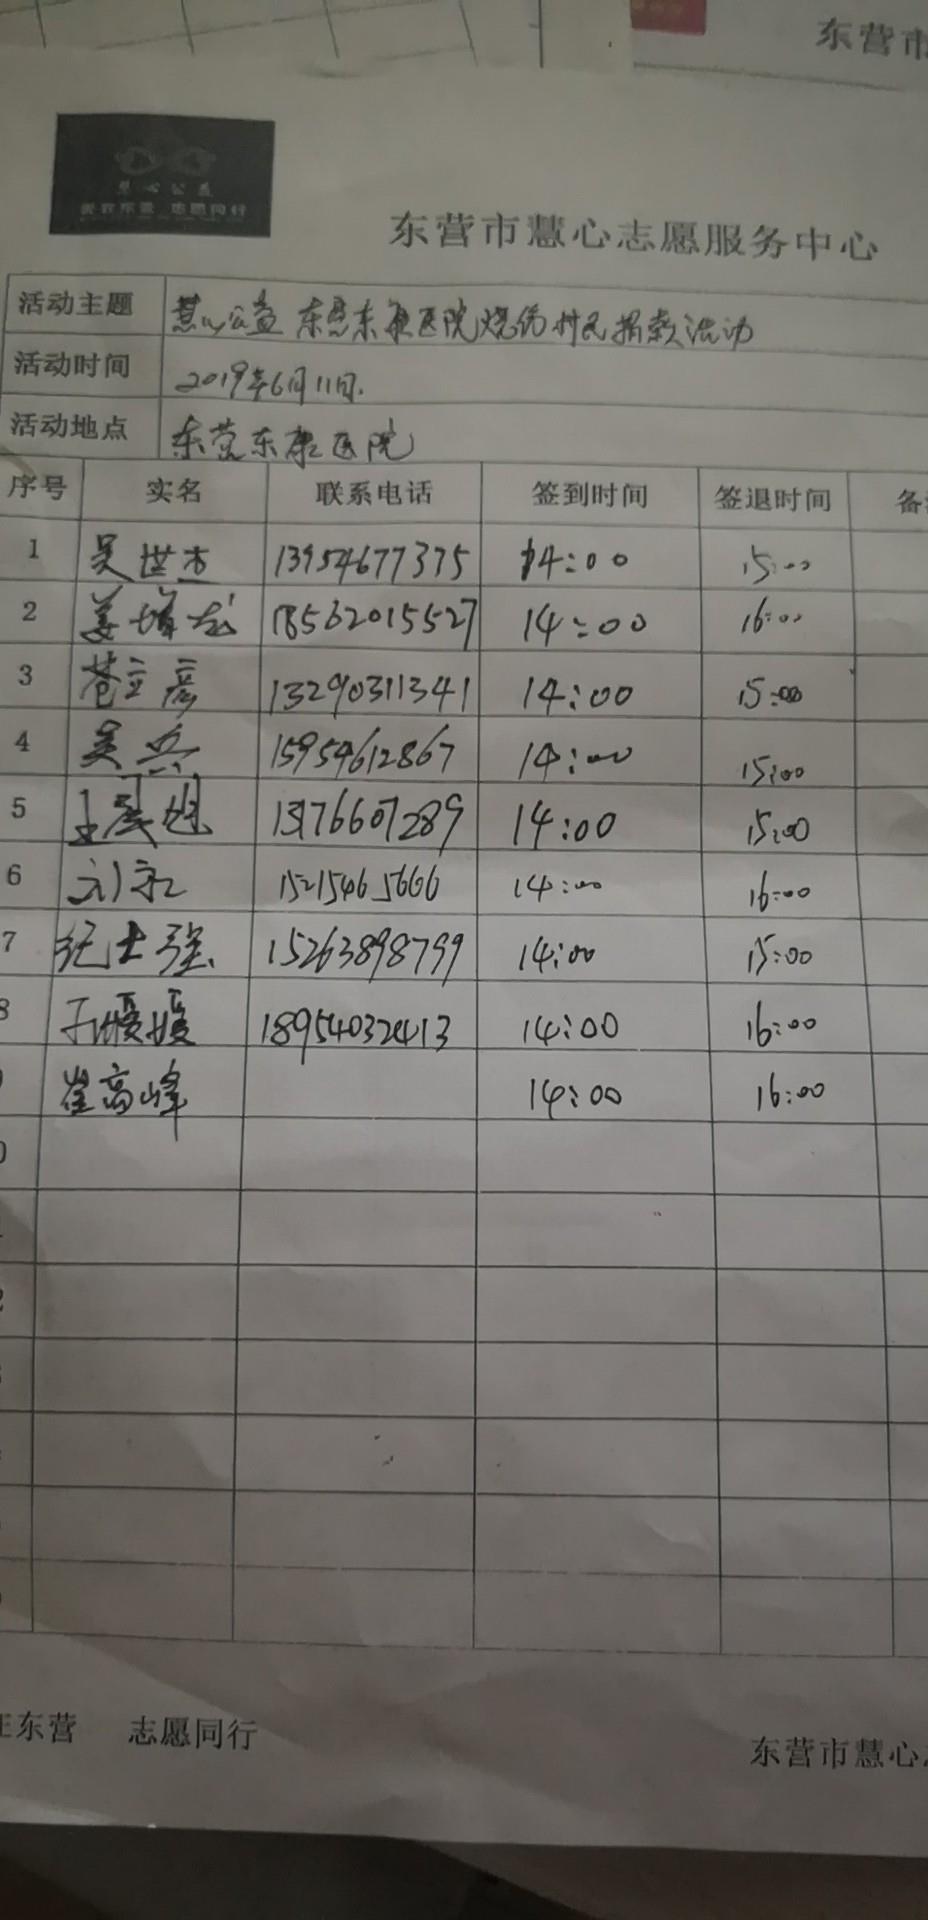 东营市
慧心公益
爱在东营 志愿同行
东营市慧心志愿服务中心
活动主题 慧心公益 东营东康医院烧伤村民捐款活动
活动时间 2019年6月11日.
活动地点 东营东康医院
序号 实名 联系电话 签到时间 签退时间 备
1 吴世杰 13954677375 14:00 15:00
2 姜 18562015527 14:00 16:00
3 苍立彦 13290311341 14:00 15:00
4 吴兵 15954612867 14:00 15:00
5 13176607289 14:00 15:00
6 刘 15215465666 14:00 16:00
7 纪士强 15263898799 14:00 15:00
8 于媛媛 18954032413 14:00 16:00
崔高峰 14:00 16:00
0
2
在东营 志愿同行
东营市慧心